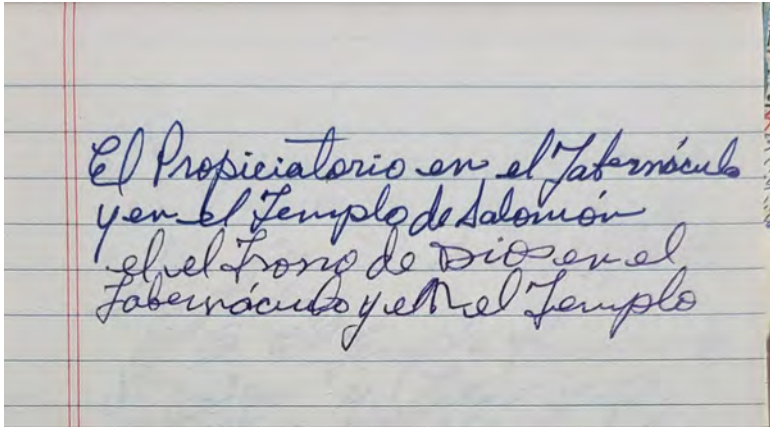 El Propiciatorio en el Tabernáculo
y en el Templo de Salomón
el el Trono de Dios en el
Tabernáculo y en el Templo